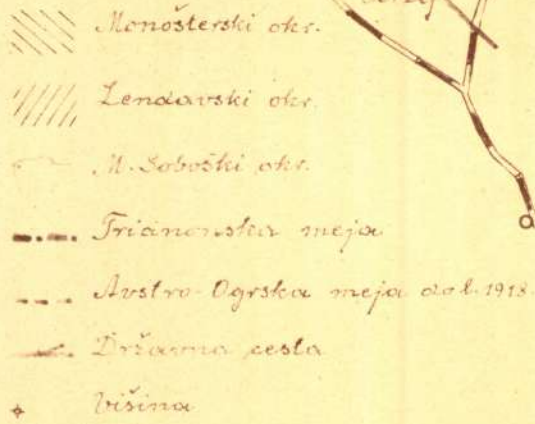 Monošterski okr.
Lendavski okr.
M. Soboški okr.
Trianonska meja
Avstro-Ogrska meja do l. 1918.
Državna cesta
Višina